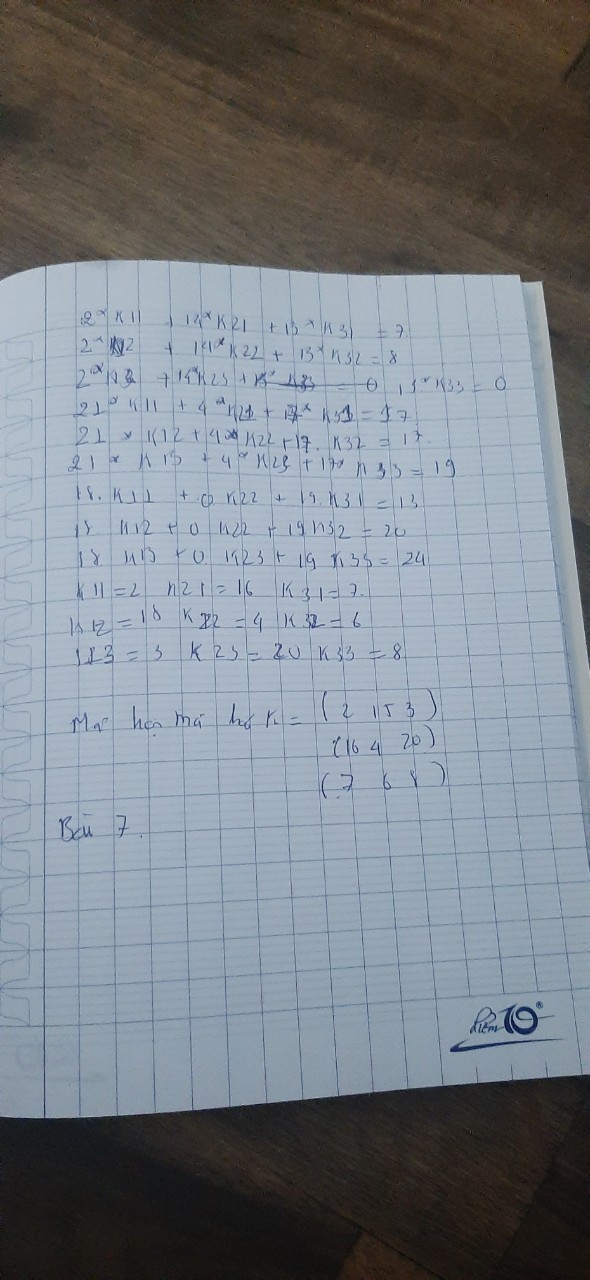 2* K11 + 14* K21 + 13* K31 = 7
2* K12 + 14* K22 + 13* K32 = 8
2* K13 + 14* K23 + 13* K33 = 0 , 13* K33 = 0
21* K11 + 4* K21 + 17* K31 = 17
21 * K12 + 4* K22 + 17. K32 = 17
21 * K13 + 4* K23 + 17* K33 = 19
18. K11 + 0 K22 + 19. K31 = 13
18 K12 + 0 K22 + 19 K32 = 20
18. K13 + 0. K23 + 19 K33 = 24
K11 = 2 K21 = 16 K31 = 7.
K12 = 18 K22 = 4 K32 = 6
K13 = 3 K23 = 20 K33 = 8
K = ( 2 15 3 )
(16 4 20)
( 7 6 8 )
Bài 7.
điểm 10